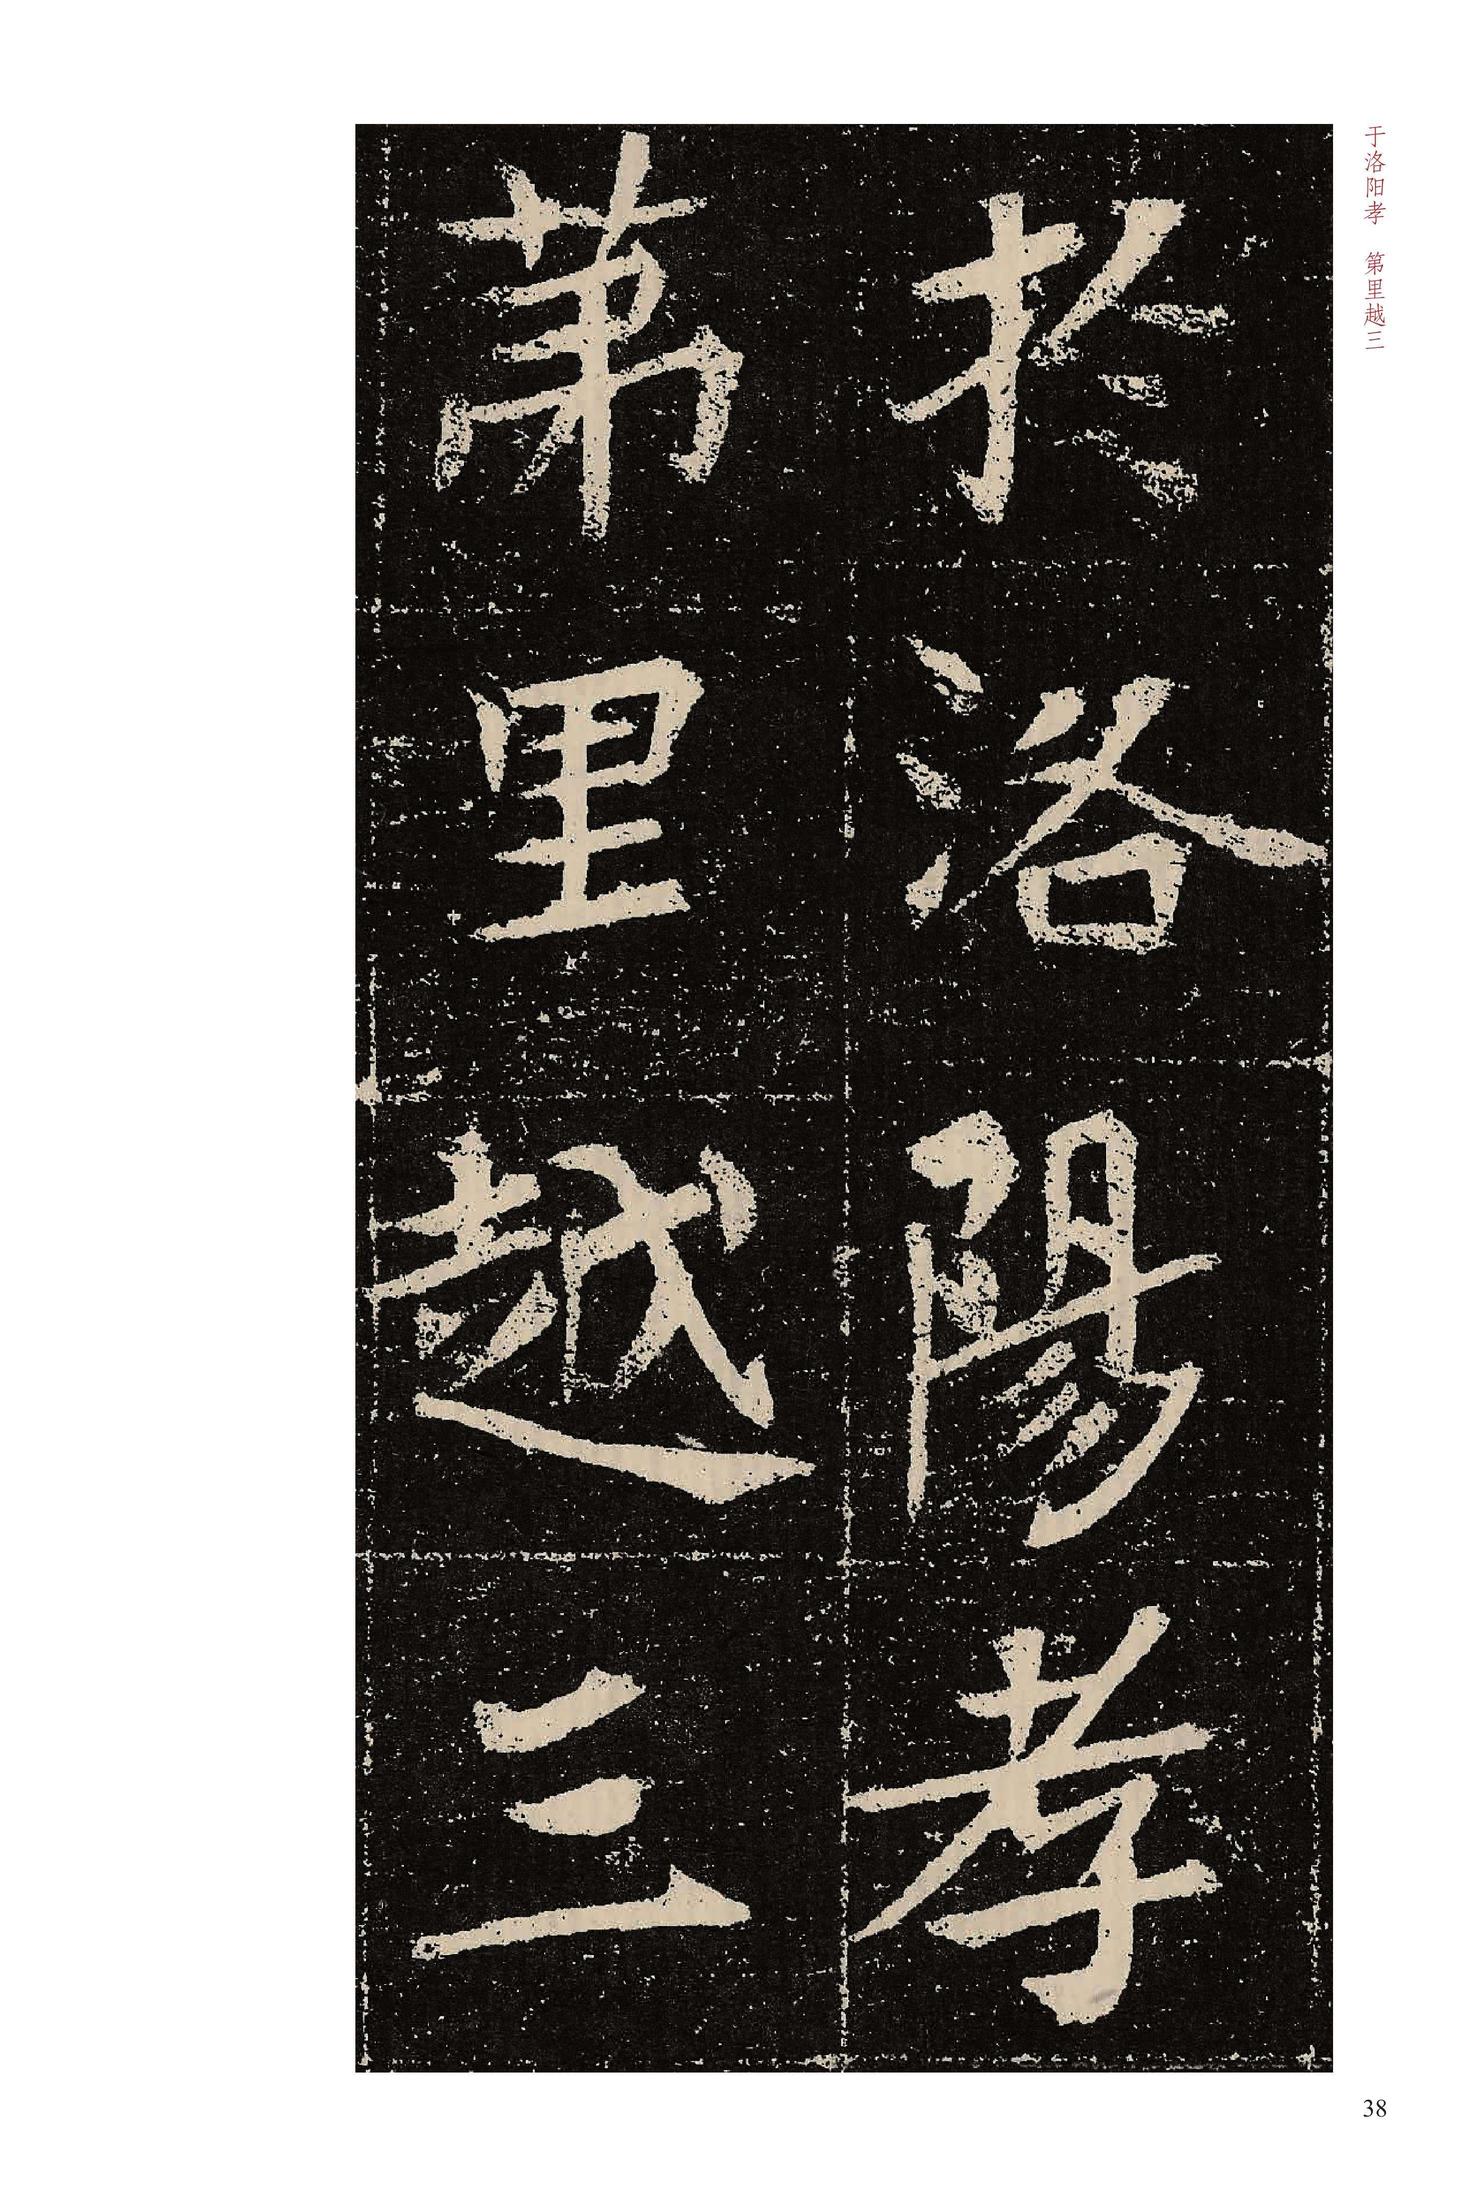 於洛陽孝
苐里越三
于洛阳孝　第里越三
38